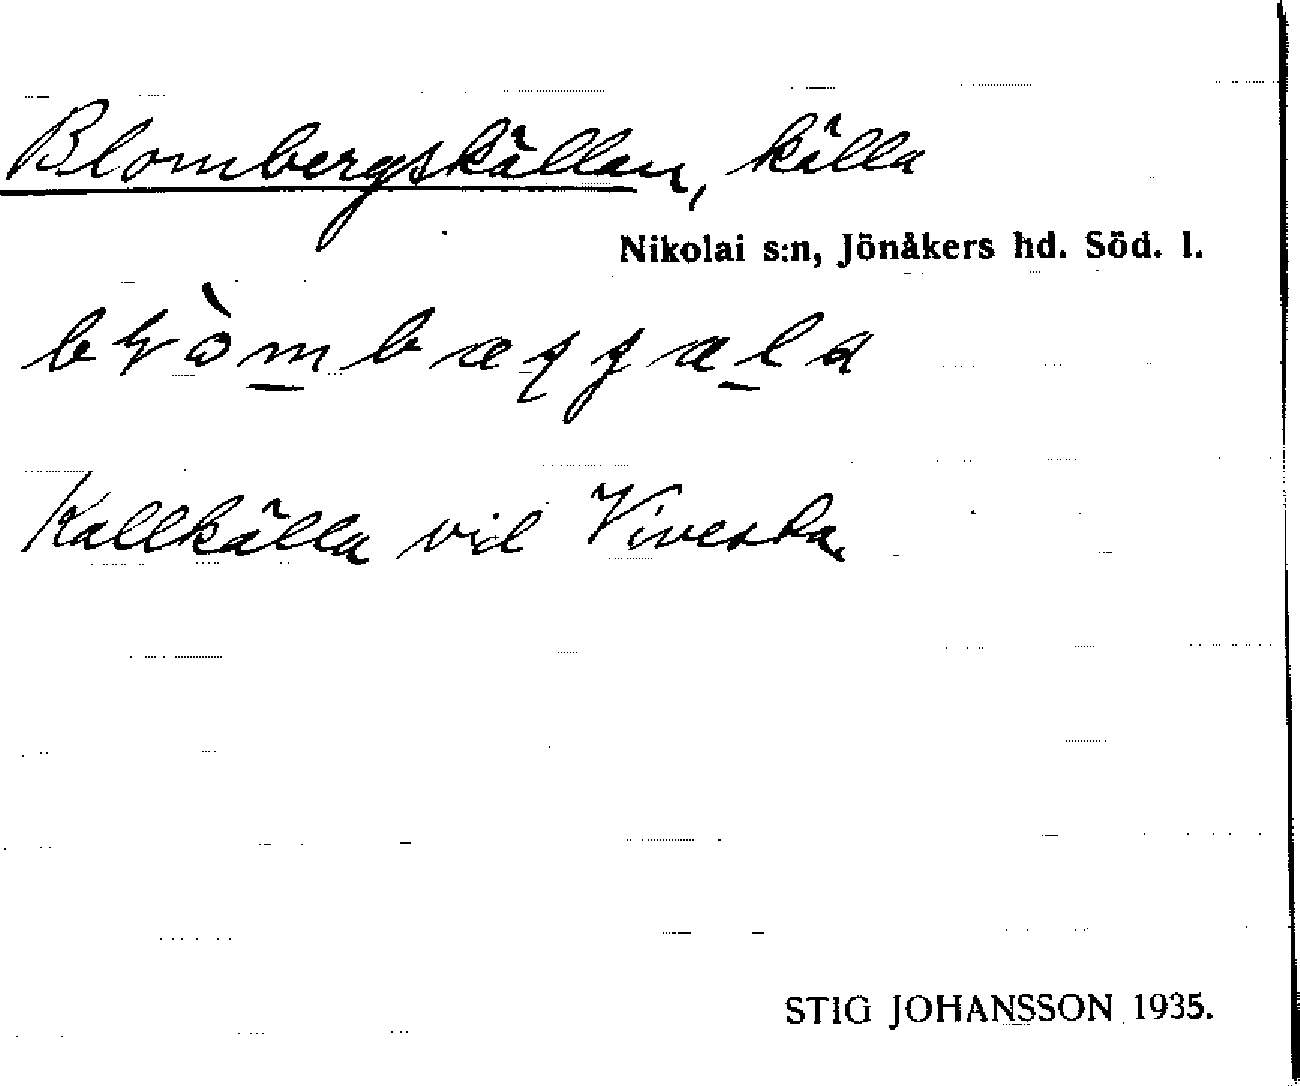 Blombergskällan, källa
Nikolai s:n, Jönåkers hd. Söd. l.
Kallkälla vid Vivesta
STIG JOHANSSON 1935.